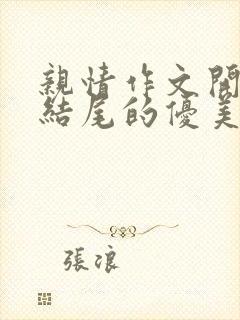 親情作文開
結尾的優美
張浪